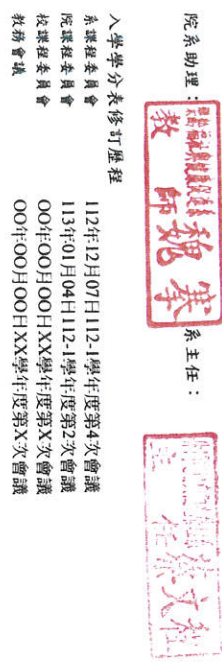 院系助理：
教師 魏
系主任：
入學學分表修訂歷程
系課程委員會 112年12月07日112-1學年度第4次會議
院課程委員會 113年01月04日112-1學年度第2次會議
校課程委員會 OO年OO月OO日XX學年度第X次會議
教務會議 OO年OO月OO日XX學年度第X次會議